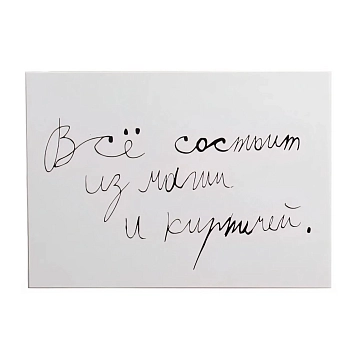 Всё состоит
из магии
и кирпичей.